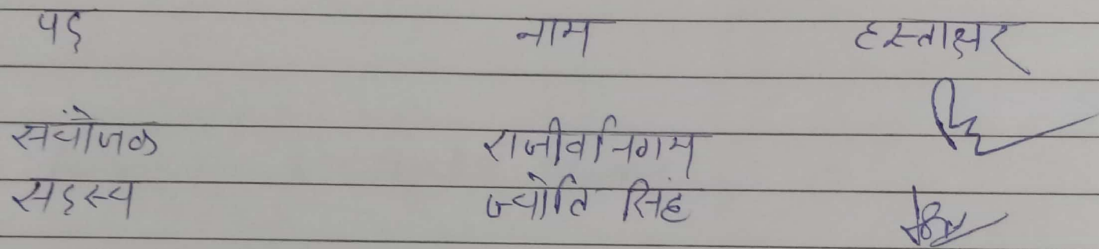 पद नाम हस्ताक्षर
संयोजक राजीव निगम
सदस्य ज्योति सिंह